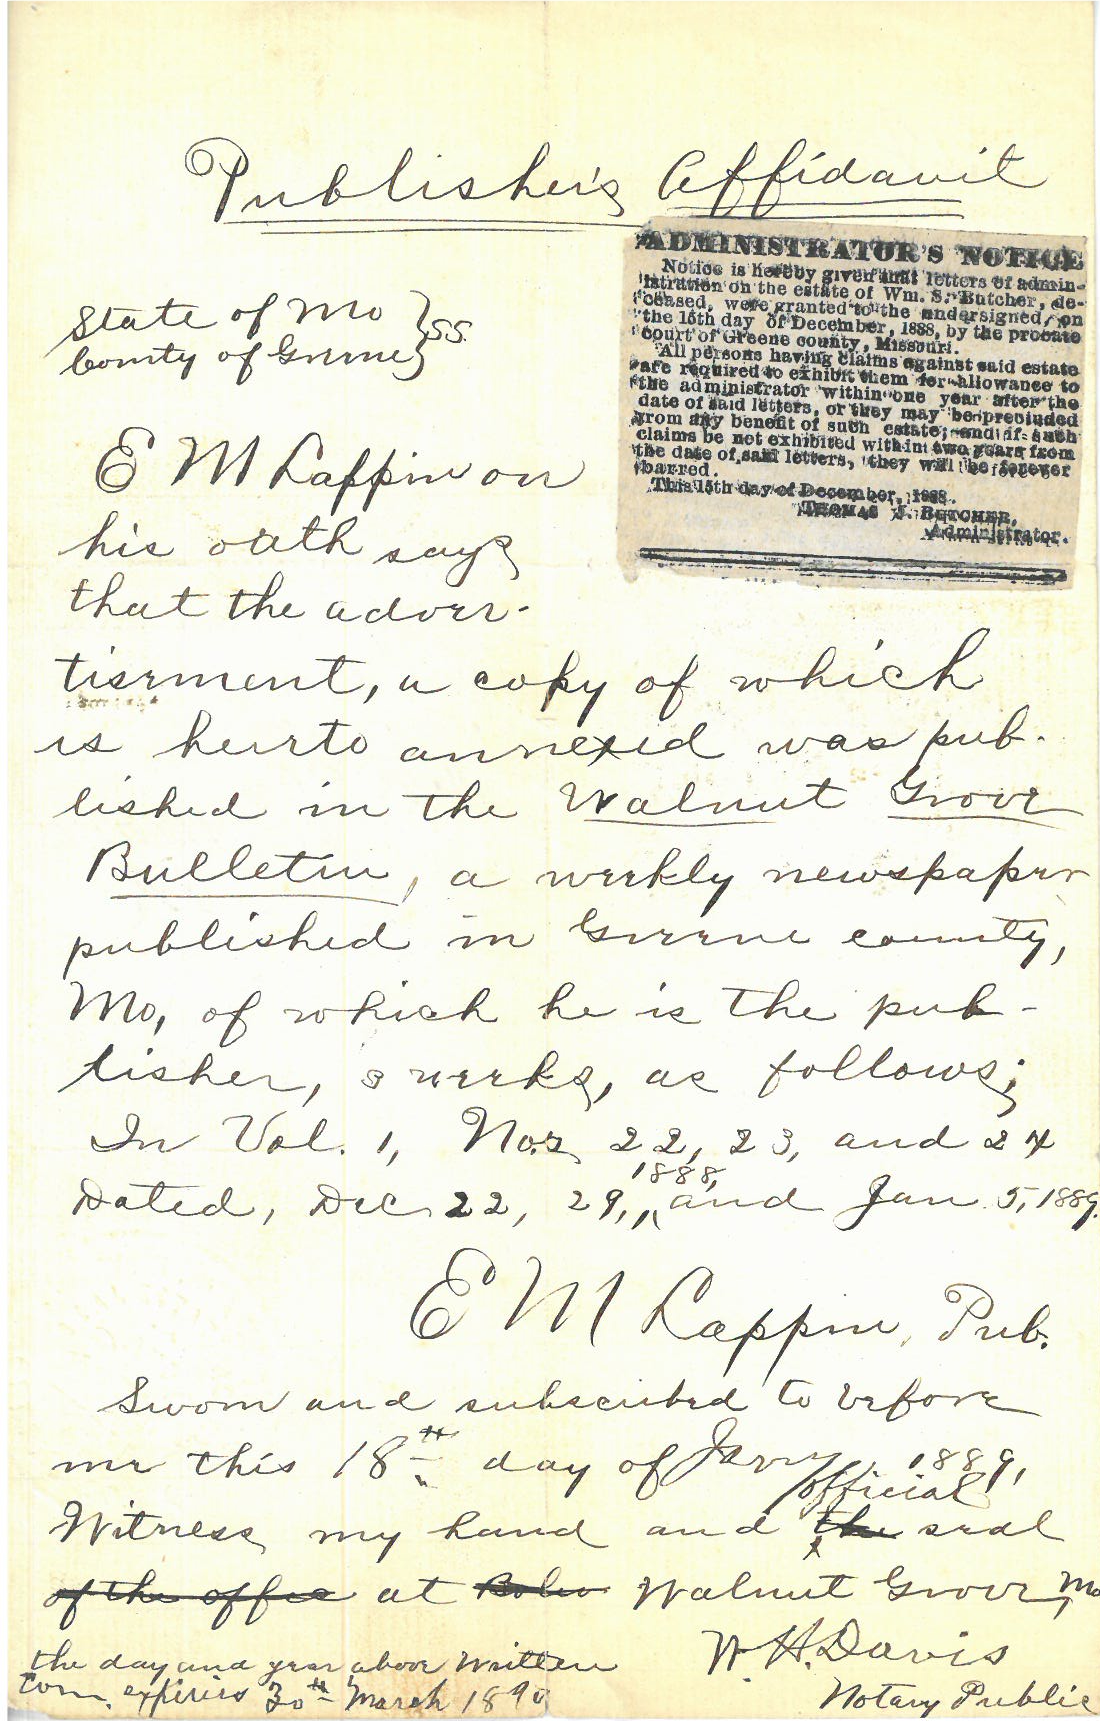 Publisher's Affidavit
ADMINISTRATOR'S NOTICE
Notice is hereby given that letters of admin-
istration on the estate of Wm. S. Butcher, de-
ceased, were granted to the undersigned, on
the 15th day of December, 1888, by the probate
court of Greene county, Missouri.
All persons having claims against said estate
are required to exhibit them for allowance to
the administrator within one year after the
date of said letters, or they may be precluded
from any benefit of such estate; and if such
claims be not exhibited within two years from
the date of said letters, they will be forever
barred.
This 15th day of December, 1888.
THOMAS J. BUTCHER,
Administrator.
State of Mo } SS.
County of Greene
E M Lappin on
his oath says
that the adver-
tisement, a copy of which
is hereto annexed was pub-
lished in the Walnut Grove
Bulletin, a weekly newspaper
published in Greene county,
Mo, of which he is the pub-
lisher, 3 weeks, as follows;
In Vol. 1, Nos. 22, 23, and 24
Dated, Dec 22, 29, 1888, and Jan 5, 1889.
E M Lappin, Pub.
Sworn and subscribed to before
me this 18th day of Jany, 1889,
Witness my hand and the official seal
of the office at Walnut Grove, Mo
the day and year above written
W. H. Davis
Com. expires 30th March 1890
Notary Public